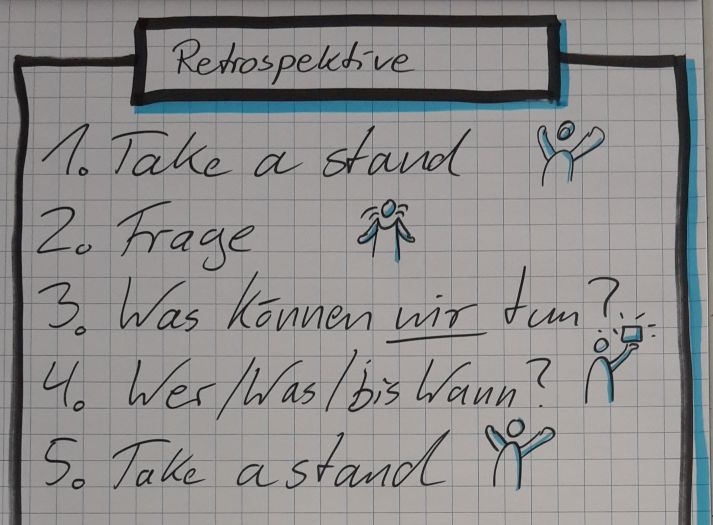 Retrospektive
1. Take a stand
2. Frage
3. Was können wir tun?
4. Wer/Was/bis Wann?
5. Take a stand